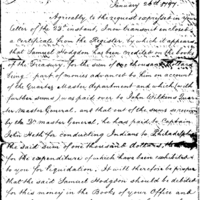 January 26th 1791.
Agreeably to the request expressed in your
letter of the 23d instant, I am transmit enclosed
a certificate from the Register, by which it appears
that Samuel Hodgdon has been Credited in the books
of the Treasury, for the sum of one thousand
being part of monies advanced to him on account
of the Quarter Master department and which (with
further sums) was paid over to John Wilkins Junr
Quar master General, and that out of the monies so received
by the Qr master general, he has paid to Captain
John Heth for conducting Indians to Philadelphia
the said sum of one thousand dollars,
for the expenditure of which have been exhibited
to you for liquidation. It will therefore be proper
that the said Samuel Hodgdon should be debited
for this money in the Books of your Office and